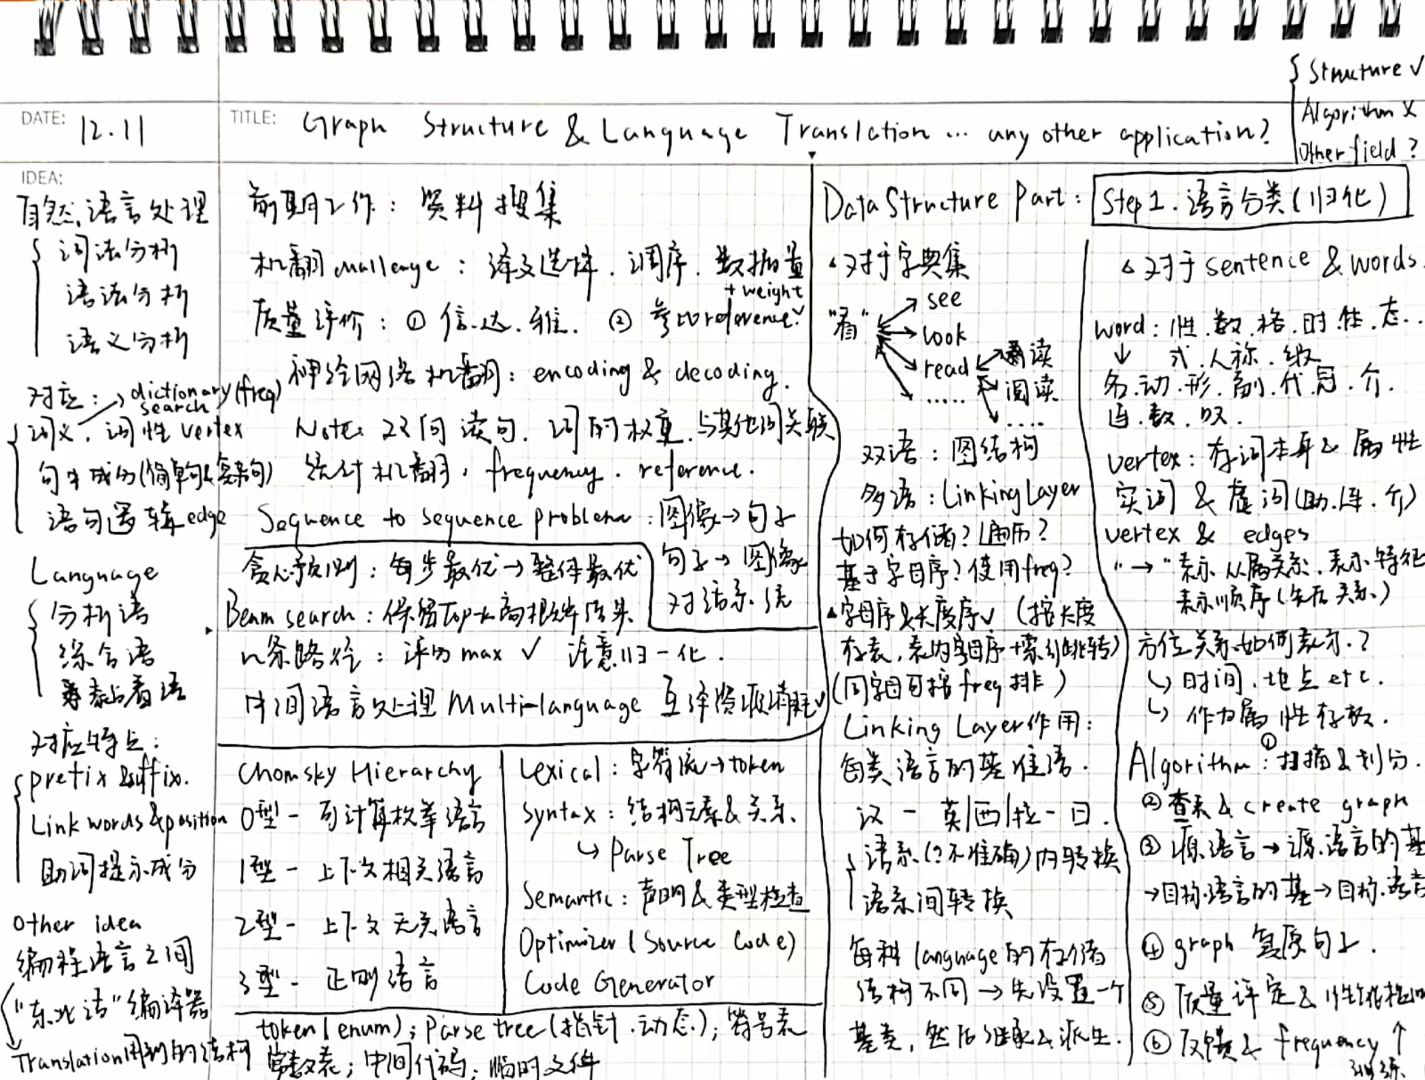 DATE: 12.11
TITLE: Graph Structure & Language Translation ... any other application?
Structure √
Algorithm ×
Other field ?
IDEA:
自然语言处理
词法分析
语法分析
语义分析
对应: dictionary (freq)
search
词义、词性 vertex
句中成分(简单句&复杂句)
语句逻辑 edge
Language
分析语
综合语
黏着语
对应特点:
prefix &uffix.
Link words & position
助词提示成分
Other idea
编程语言之间
"东北话"编译器
Translation用到的结构
前期工作: 资料搜集
机翻challenge: 译文选择. 调序. 数据量
+ weight
质量评价: ① 信.达.雅. ② 参考reference?
神经网络机翻: encoding & decoding.
Note: 双向读句. 词的权重. 与其他词关联
统计机翻. frequency. reference.
Sequence to sequence problem: 图像→句子
句子→图像
对话系统
贪心预测: 每步最优→整体最优
Beam search: 保留Top-k高概率结果
n条路径: 评分max √ 注意归一化.
中间语言处理 Multi-language 互译资源消耗√
Chomsky Hierarchy
0型 - 可计算枚举语言
1型 - 上下文相关语言
2型 - 上下文无关语言
3型 - 正则语言
Lexical: 字符流→token
Syntax: 结构元素&关系.
Parse Tree
Semantic: 声明&类型检查
Optimizer (Source Code)
Code Generator
token(enum); Parse tree(指针.动态); 符号表
常数表; 中间代码; 临时文件
Data Structure Part:
对于字典集
"看"
see
look
read
看读
阅读
......
.....
双语: 图结构
多语: Linking Layer
如何存储? 遍历?
基于字母序? 使用freq?
字母序&长度序√ (按长度
存表, 表内字母序+索引跳转)
(同字母可按freq排)
Linking Layer作用:
每类语言的基准语.
汉 - 英|西|拉 - 日.
语系(?不准确)内转换
语系间转换
每种language的存储
结构不同→先设置一个
基类, 然后继承&派生.
Step 1. 语言分类(归化)
对于sentence & words.
word: 性.数.格.时.体.态...
式.人称.级
名.动.形.副.代.冠.介.
连.数.叹.
vertex: 存词本身&属性
实词 & 虚词(助.连.介)
vertex & edges
"→" 表示从属关系. 表示特征
表示顺序(先后关系)
方位关系如何表示?
时间.地点etc.
作为属性存放.
Algorithm: ①扫描&划分.
②查表& create graph
③ 源语言→源语言的基
→目标语言的基→目标语言
④ graph 复原句子.
⑤ 质量评定&性能
⑥ 反馈& frequency ↑
训练.